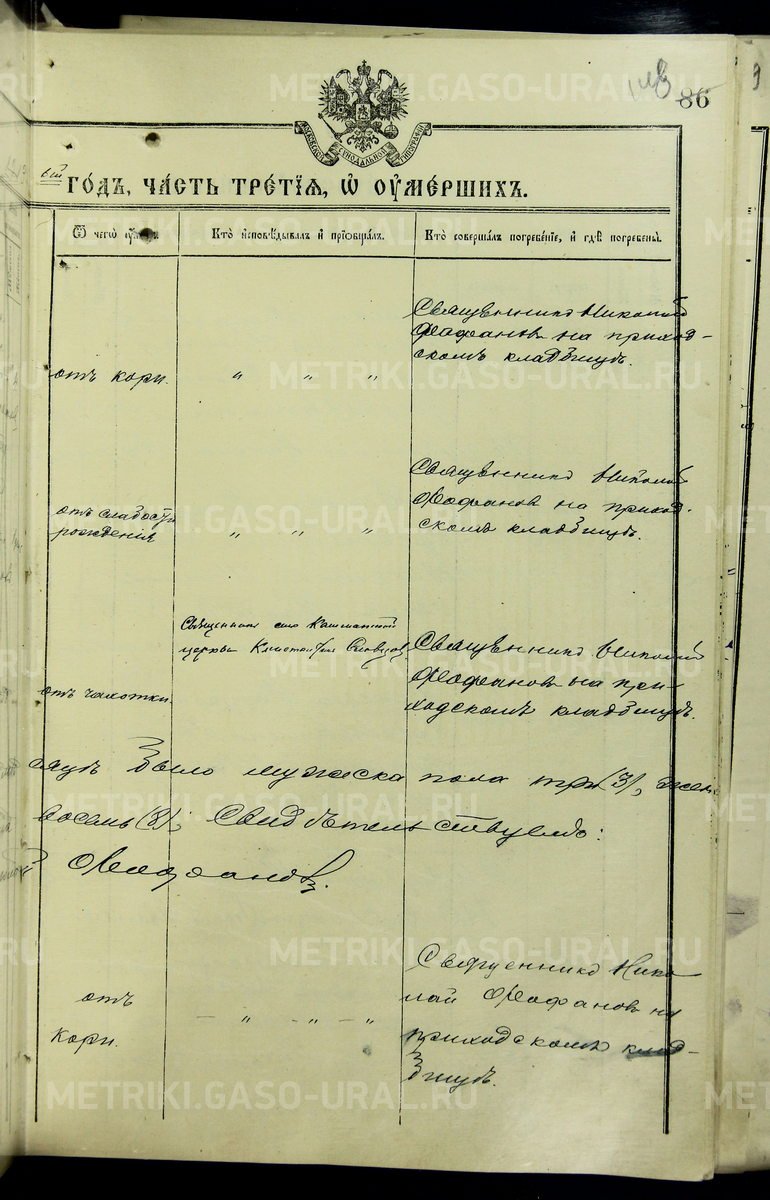 86
МОСКОВСКОЙ СѴНОДАЛЬНОЙ ТИПОГРАФІИ
ГО́ДЪ, ЧА́СТЬ ТРЕ́ТІѦ, Ѡ҆ ОУ҆МЕ́РШИХЪ.
Ѿ чегѡ̀
Кто̀ и҆сповѣ́дывалъ и҆ прїѡбща́лъ.
Кто̀ соверша́лъ погребе́нїе, и҆ гдѣ̀ погребены̀.
отъ кори.
" " "
Священникъ Николай
Феофановъ на приход-
скомъ кладбищѣ.
отъ слабости
рожденія
" " "
Священникъ Николай
Феофановъ на приход-
скомъ кладбищѣ.
Священникъ
церкви Словцовъ
отъ чахотки.
Священникъ Николай
Феофановъ на при-
ходскомъ кладбищѣ.
было мужеска пола три (3), жен
восемь (8); Свидѣтельствуемъ:
Феофановъ.
отъ
кори.
— " — " — "
Священникъ Нико
лай Феофановъ на
приходскомъ клад-
бищѣ.
METRIKI.GASO-URAL.RU